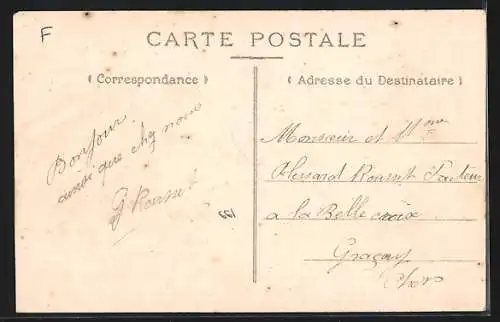 F
CARTE POSTALE
( Correspondance )
( Adresse du Destinataire )
Bonjour
ainsi que chez nous
G Rousset
Monsieur et Mme
Rousset
a la Belle croix
Graçay
Cher